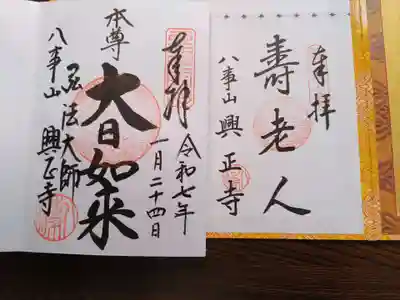 奉拝
壽老人
八事山 興正寺
奉拝
令和七年
一月二十四日
本尊
大日如来
弘法大師
八事山 興正寺